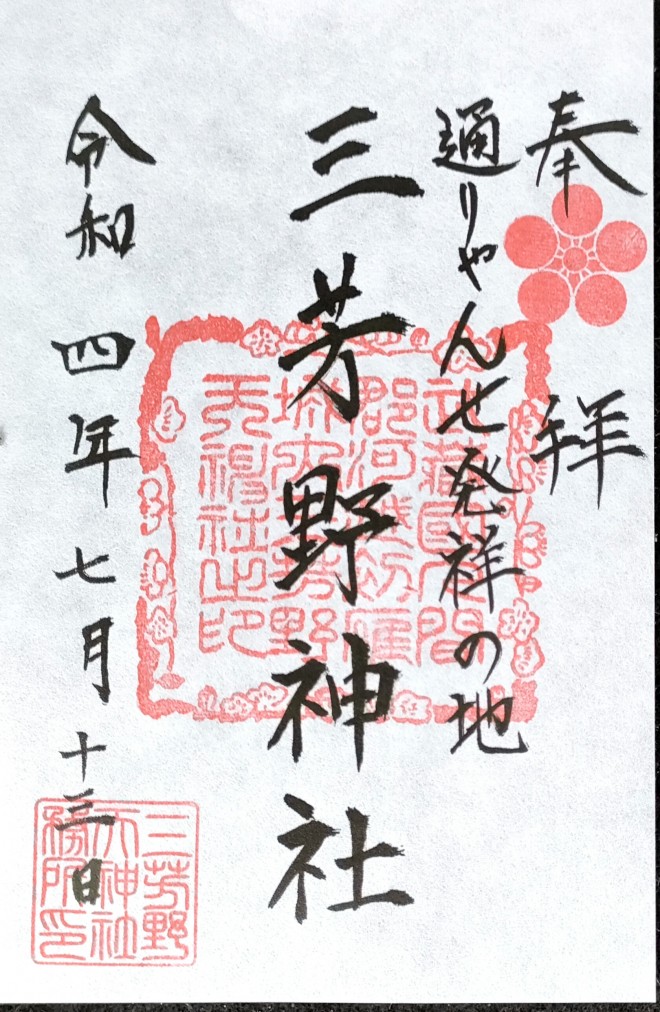 奉拝
通りやんせ発祥の地
三芳野神社
令和四年七月十三日
武蔵国入間
郡河越初雁
城内三芳野
天神社之印
三芳野
天神社
務所印